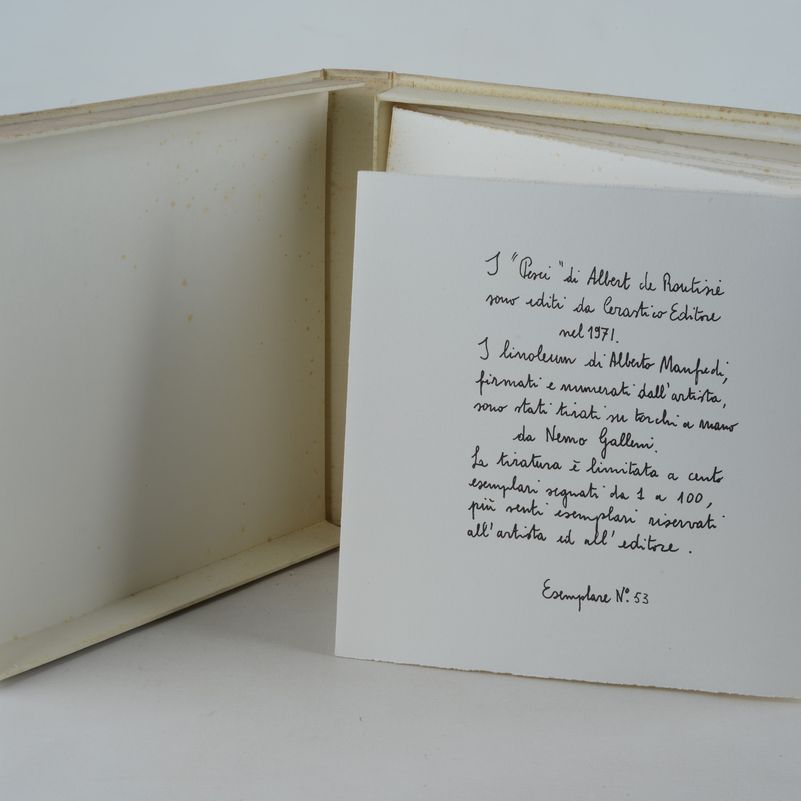 I "Pesci" di Albert de Routisié
sono editi da Cerastico Editore
nel 1971.
I linoleum di Alberto Manfredi,
firmati e numerati dall'artista,
sono stati tirati su torchi a mano
da Nemo Galleni.
La tiratura è limitata a cento
esemplari segnati da 1 a 100,
più venti esemplari riservati
all'artista ed all'editore.
Esemplare N° 53